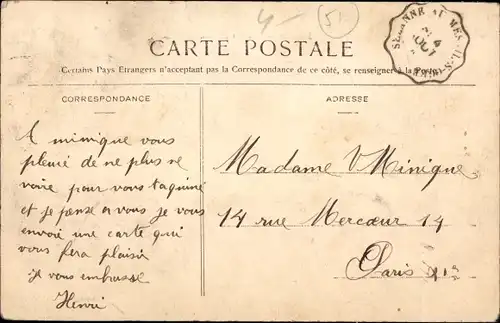 4-
51
CARTE POSTALE
Certains Pays Etrangers n'acceptant pas la Correspondance de ce côté, se renseigner à la Poste
CORRESPONDANCE
A mimique vous
pleuré de ne plus se
voire pour vous taquiné
et je pense a vous je vous
envoie une carte qui
vous fera plaisir
je vous embrasse
Henri
ADRESSE
Madame V Minique
14 rue Mercœur 14
Paris XIe